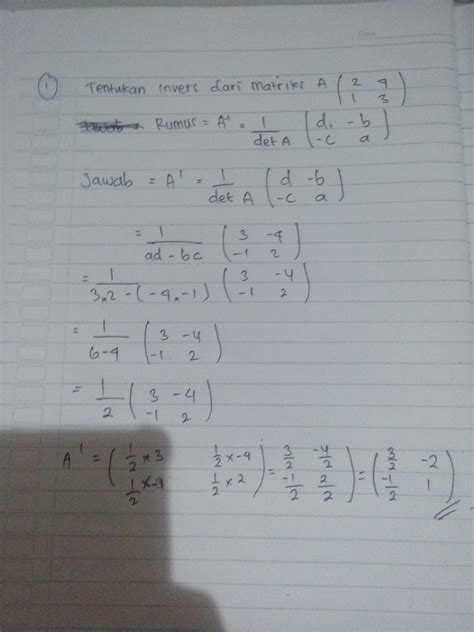 ① Tentukan invers dari matriks A ( 2 4 )
( 1 3 )
Rumus = A' = 1/det A ( d, -b )
( -c a )
Jawab = A' = 1/det A ( d -b )
( -c a )
= 1/ad - bc ( 3 -4 )
( -1 2 )
= 1/3×2 - (-4×-1) ( 3 -4 )
( -1 2 )
= 1/6-4 ( 3 -4 )
( -1 2 )
= 1/2 ( 3 -4 )
( -1 2 )
A' = ( 1/2 × 3 1/2 × -4 ) = 3/2 -4/2 = ( 3/2 -2 )
( 1/2 × 2 ) -1/2 2/2 ( -1/2 1 )